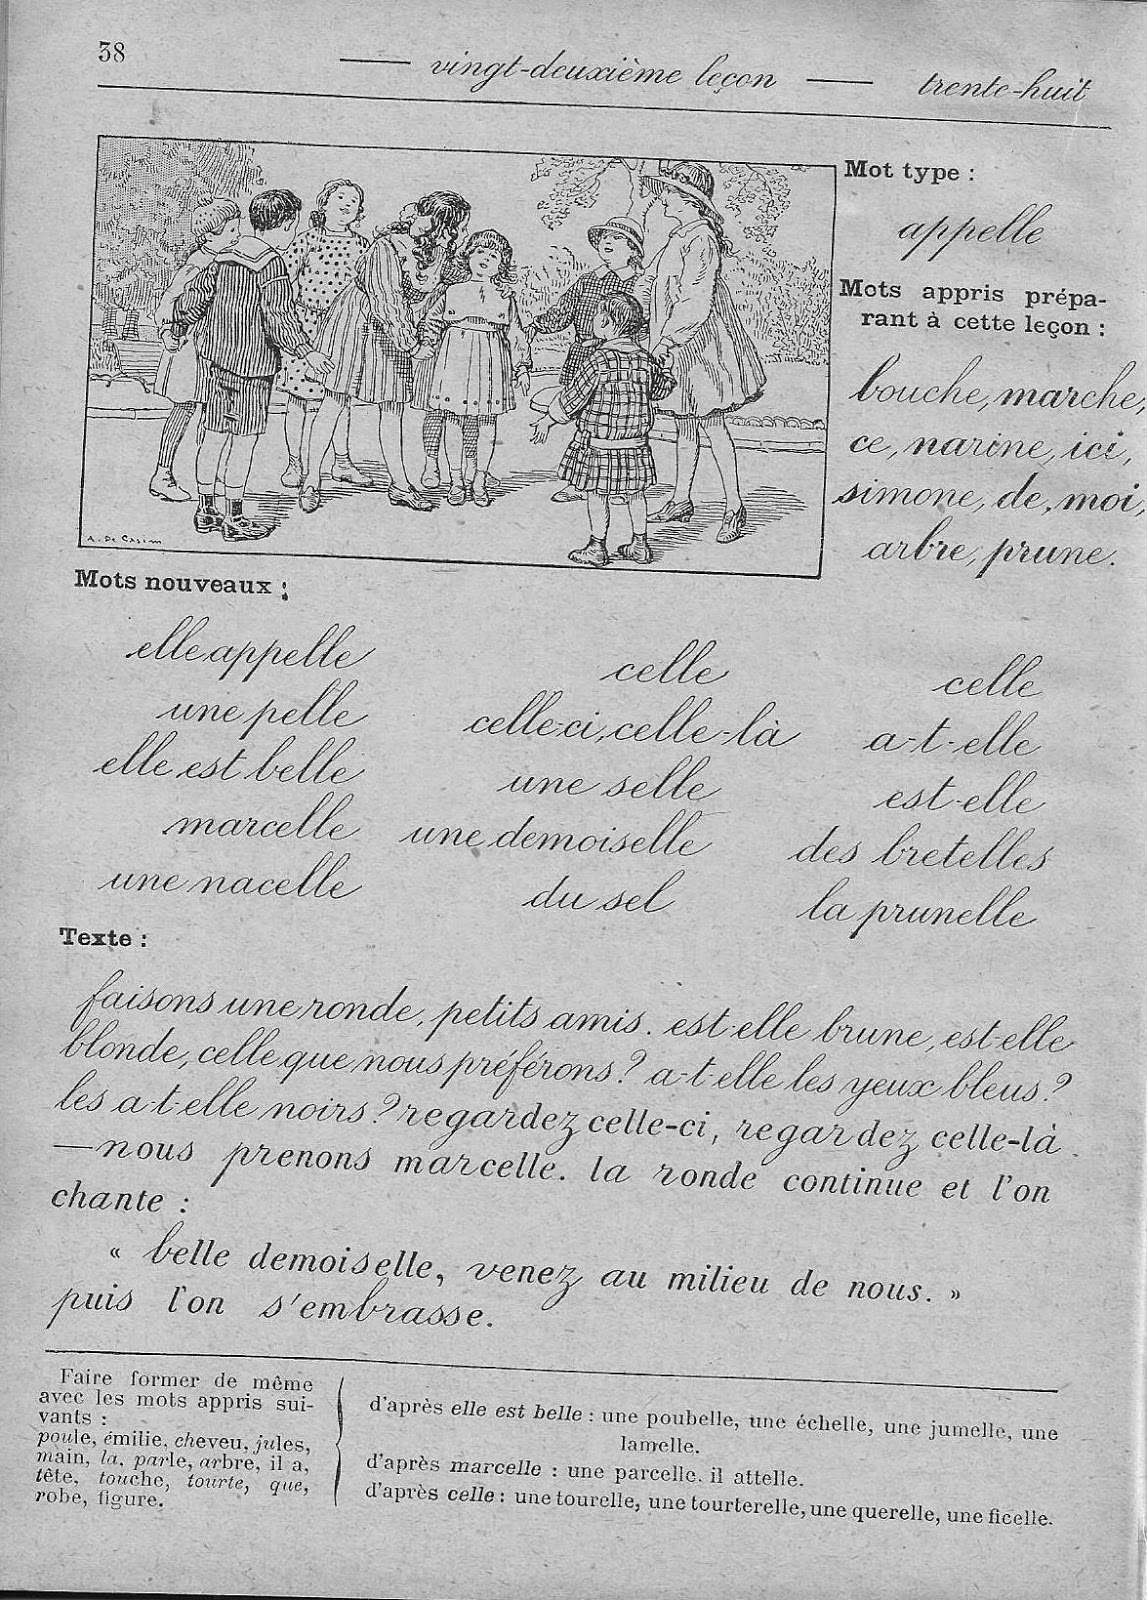 38
— vingt-deuxième leçon —
trente-huit
Mot type :
appelle
Mots appris prépa-
rant à cette leçon :
bouche, marche,
ce, narine, ici,
simone, de, moi,
arbre, prune.
Mots nouveaux :
elle appelle
une pelle
elle est belle
marcelle
une nacelle
celle
celle-ci, celle-là
une selle
une demoiselle
du sel
celle
a-t-elle
est-elle
des bretelles
la prunelle
Texte :
faisons une ronde, petits amis. est-elle brune, est-elle
blonde, celle que nous préférons ? a-t-elle les yeux bleus ?
les a-t-elle noirs ? regardez celle-ci, regardez celle-là.
— nous prenons marcelle. la ronde continue et l'on
chante :
« belle demoiselle, venez au milieu de nous. »
puis l'on s'embrasse.
Faire former de même
avec les mots appris sui-
vants :
poule, émilie, cheveu, jules,
main, la, parle, arbre, il a,
tête, touche, tourte, que,
robe, figure.
d'après elle est belle : une poubelle, une échelle, une jumelle, une
lamelle.
d'après marcelle : une parcelle, il attelle.
d'après celle : une tourelle, une tourterelle, une querelle, une ficelle.